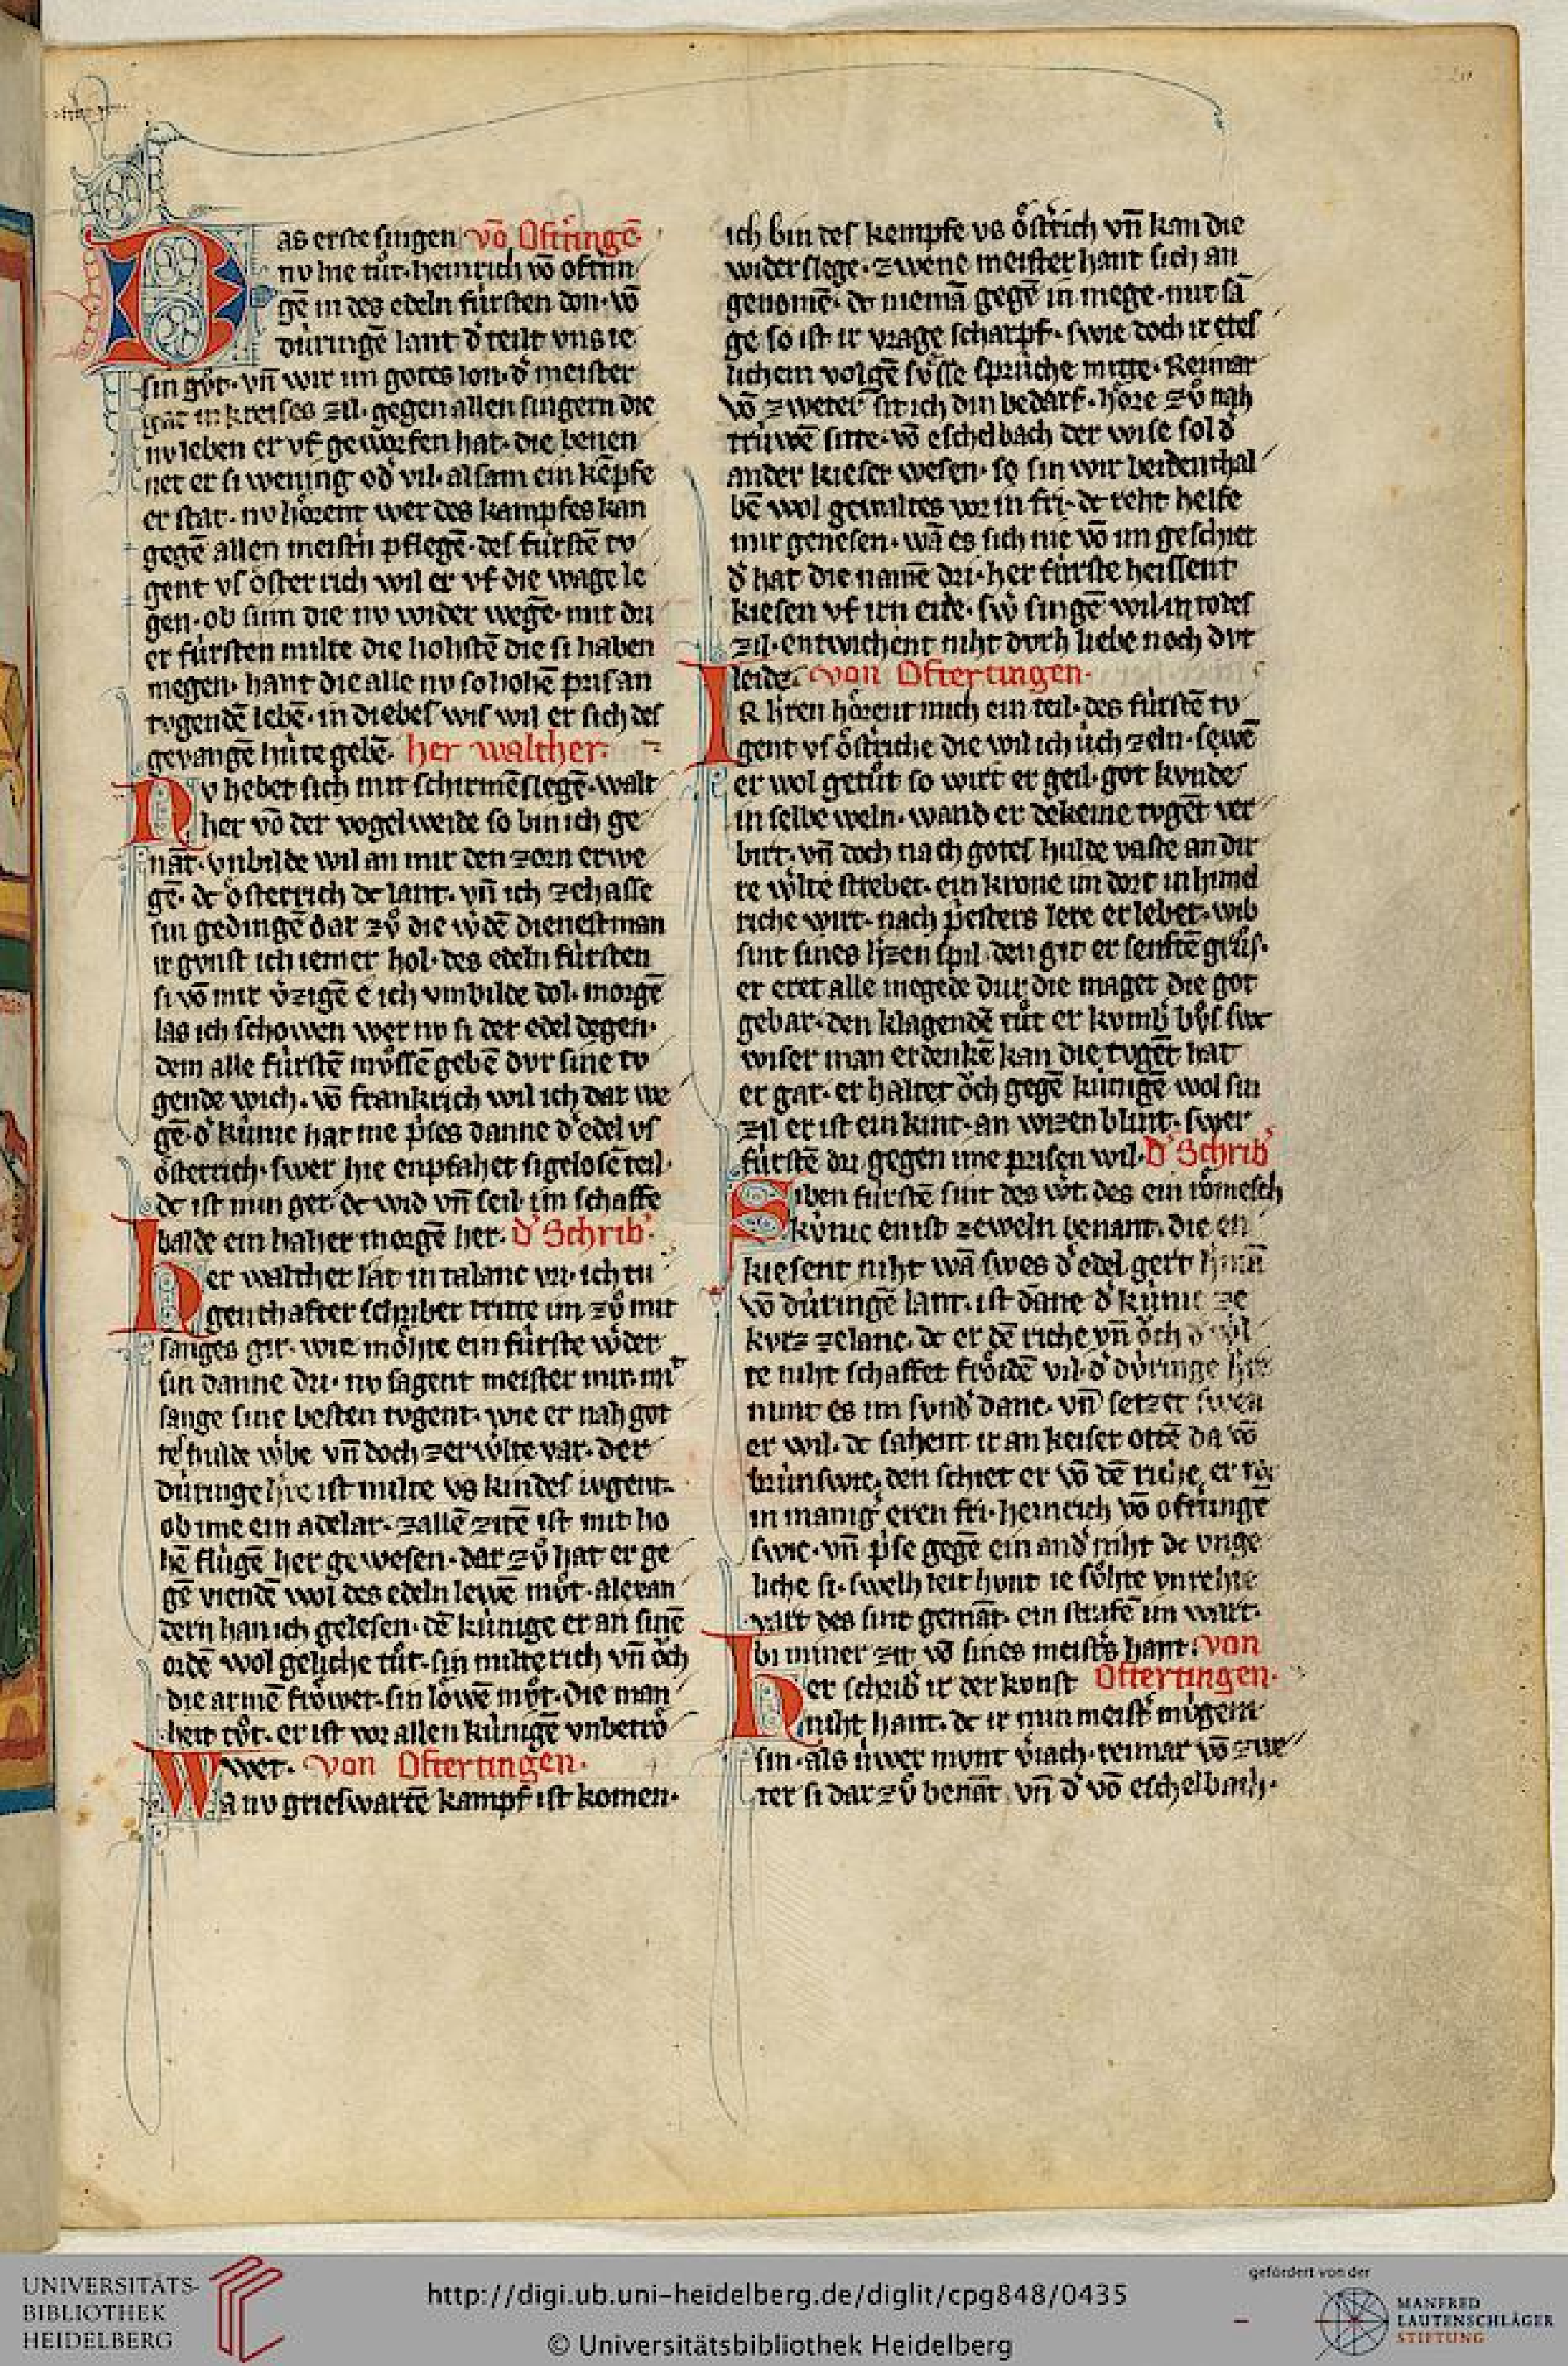 as erste singen vō Oftringē
nv hie tůt heinrich vō oftrin
gē in des edeln fúrsten don· vō
dúringē lant d' teilt vns ie
sin gůt· vn̄ wir im gotes lon· d' meister
gat in kreises zil· gegen allen singern die
nv leben er vf geworfen hat· die benen
net er si wening od' vil· alsam ein kēpfe
er stat· nv hȯrent wer des kampfes kan
gegē allen meist'n pflegē· des fúrstē tv
gent vs ȯsterrich wil er vf die wage le
gen· ob sim die nv wider wegē· mit dri
er fúrsten milte die hohstē die si haben
megen· hant die alle nv so hohē pris an
tvgendē lebē· in diebes wis wil er sich des
gevangē húte gebē· her walther·
Nv hebet sich mit schirmēslegē· walt
her vō der vogelweide so bin ich ge
nāt· vnbilde wil an mir den zorn erwe
gē· dc ȯsterrich dc lant· vn̄ ich zehasse
sin gedingē dar zů die w'dē dienestman
ir gvnst ich iemer hol· des edeln fúrsten
si vō mir v'zigē e ich vmbilde dol· morgē
las ich schowen wer nv si der edel degen·
dem alle fúrstē můssē gebē dvr sine tv
gende wich· vō frankrich wil ich dar we
gē· d' kúnic hat me p'ses danne d' edel vs
ȯsterrich· swer hie enpfahet sigelosē teil·
dc ist min get· dc wid vn̄ seil im schaffe
balde ein haher morgē her· d' Schrib'·
Her walther lat in talanc vri· ich tu
genthafter schriber tritte im zů mit
sanges gir· wie mȯhte ein fúrste w'der
sin danne dri· nv sagent meister mir mit
sange sine besten tvgent· wie er nah got
tes hulde w'be vn̄ doch zer w'lte var· der
dúringe h're ist milte vs kindes ivgent·
ob ime ein adelar· zallē zitē ist mit ho
hē flúgē her gewesen· dar zů hat er ge
gē viendē wol des edeln lewē můt· alexan
dern han ich gelesen· dē kúnige er an sinē
ordē wol geliche tůt· sin milte rich vn̄ och
die armē frȯwet· sin lȯwē můt· die man
heit tůt· er ist vor allen kúnigē vnbetrȯ
wet· von Oftertingen·
Wa nv grieswartē kampf ist komen·
ich bin des kempfe vs ȯst'rich vn̄ kan die
widerslege· zwene meister hant sich an
genomē· dc niemā gegē in mege· mit sā
ge so ist ir vrage scharpf· swie doch ir etes
lichem volgē sůsse sprúche mitte· Reimar
vō zweter sit ich din bedarf· hȯre zů nah
trúwē sitte· vō eschelbach der wise sol d'
ander kieser wesen· so sin wir beidenthal
bē wol gewaltes vor in fri· dc reht helfe
mir genesen· wā es sich nie vō im geschiet
d' hat die namē dri· her fúrste heissent
kiesen vf irn eide· sw' singē wil· in todes
zil· entwichent niht dvrh liebe noch dvr
leide· von Oftertingen·
IR h'ren hȯrent mich ein teil· des fúrstē tv
gent vs ȯst'riche die wil ich úch zeln· sewē
er wol getůt so wirt er geil· got kvnde
in selbe weln· wand er dekeine tvgēt ver
birt· vn̄ doch nach gotes hulde vaste an dir
re w'lte strebet· ein krone im dort in himel
riche wirt· nach p'esters lere er lebet· wib
sint sines h'zen spil· den git er senftē grůs·
er eret alle megede dur die maget die got
gebar· den klagendē tůt er kvmb' bůs swc
wiser man erdenkē kan die tvgēt hat
er gar· er haltet och gegē kúnigē wol sin
zil er ist ein kint· an wizen blint· swer
fúrstē dri gegen ime prisen wil· D' Schrib'
Siben fúrstē sint des w't· des ein rȯmesch
kúnic enist zeweln benant· die en
kiesent niht wā swes d' edel gert h'man
vō dúringē lant· ist dāne d' kúnic ze
kvrz zelanc· dc er dē riche vn̄ och d' w'l
te niht schaffet frȯidē vil· d' dúringe h're
nimt es im svnd' danc· vn̄ setzet swen
er wil· dc sahent ir an keiser ottē da vō
brúnswic· den schiet er vō dē riche er
in manig' eren fri· heinrich vō oftringē
swic· vn̄ p'se gegē ein and' niht dc vnge
liche si· swelh leit hvnt ie sȯlhte vnrehte
vart des sint gemāt· ein strafē im wart·
bi miner zit vō sines meist's hant· von
Her schrib' ir der konst Oftertingen·
niht hant· dc ir min meist' mvgent
sin· als úwer mvnt v'iach· reimar vō zwe
ter si dar zů benāt· vn̄ d' vō eschelbach·
UNIVERSITÄTS-
BIBLIOTHEK
HEIDELBERG
http://digi.ub.uni-heidelberg.de/diglit/cpg848/0435
© Universitätsbibliothek Heidelberg
gefördert von der
MANFRED
LAUTENSCHLÄGER
STIFTUNG